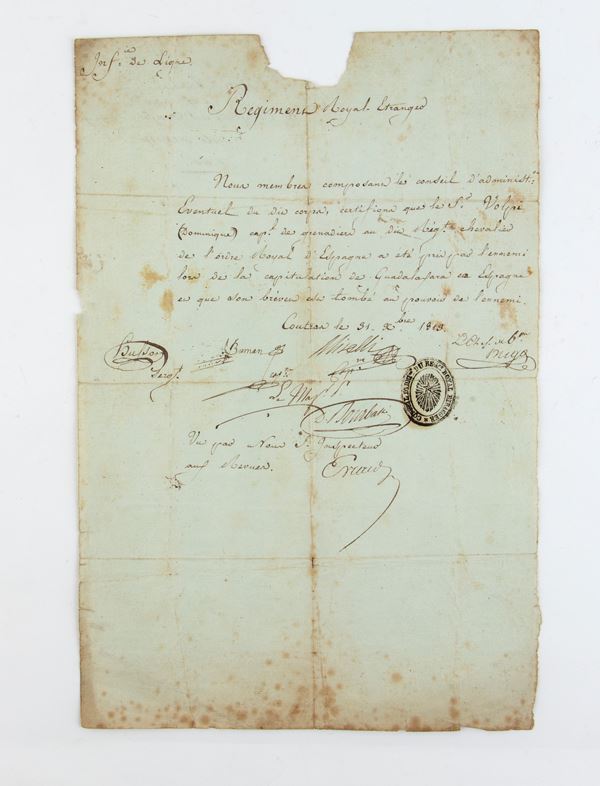 Inf.ie De Ligne.
Regiment Royal-Etranger
Nous membres composant le conseil d'administ.on
Eventuel du dit corps, certifions que le S.r Volpi
(Dominique) cap.e de grenadiers au dit Rég.t chevalier
de l'ordre Royal d'Espagne a été pris par l'ennemi
lors de la capitulation de Guadalaxara en Espagne
et que son brévet est tombé au pouvoir de l'ennemi.
Coutras le 31. X.bre 1813.
Le Maj.r
Vu par Nous S. Inspecteur
aux Revues.